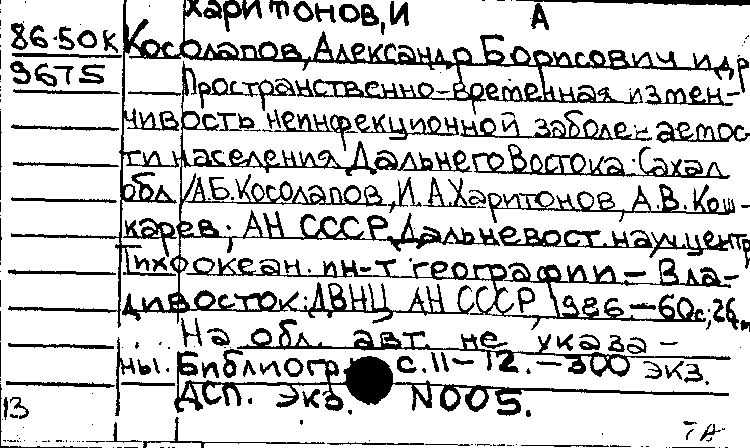 Харитонов, И А
86-50К Косолапов, Александр Борисович и др
9675 Пространственно-временная измен-
чивость неинфекционной заболеваемос-
ти населения Дальнего Востока: Сахал
обл / А.Б. Косолапов, И.А. Харитонов, А.В. Кош-
карев; АН СССР, Дальневост. науч. центр
Тихоокеан. ин-т географии. – Вла-
дивосток: ДВНЦ АН СССР, 1986. – 60с; 26
На обл. авт. не указа-
ны. Библиогр. с. 11-12. – 300 экз.
ДСП. Экз. N005.
13